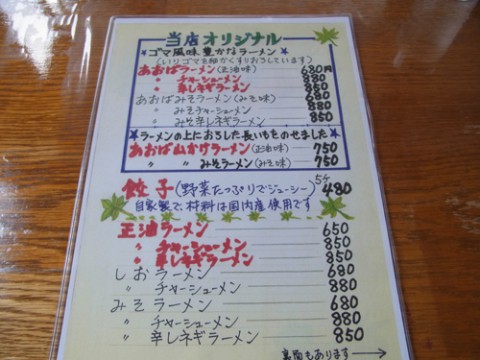 当店オリジナル
★ゴマ風味豊かなラーメン★
(いりゴマを細かくすりおろしています)
あおばラーメン(正油味) 680円
〃 チャーシューメン 880
〃 辛しネギラーメン 850
あおばみそラーメン(みそ味) 680
〃 みそチャーシューメン 880
〃 みそ辛しネギラーメン 850
★ラーメンの上におろした長いものをのせました★
あおば山かけラーメン(正油味) 750
〃 〃 みそラーメン(みそ味) 750
餃子(野菜たっぷりでジューシー) 5ケ 480
自家製で、材料は国内産使用です
正油ラーメン 650
〃 チャーシューメン 850
〃 辛しネギラーメン 850
しおラーメン 680
〃 チャーシューメン 880
みそラーメン 680
〃 チャーシューメン 880
〃 辛しネギラーメン 850
裏面もあります→